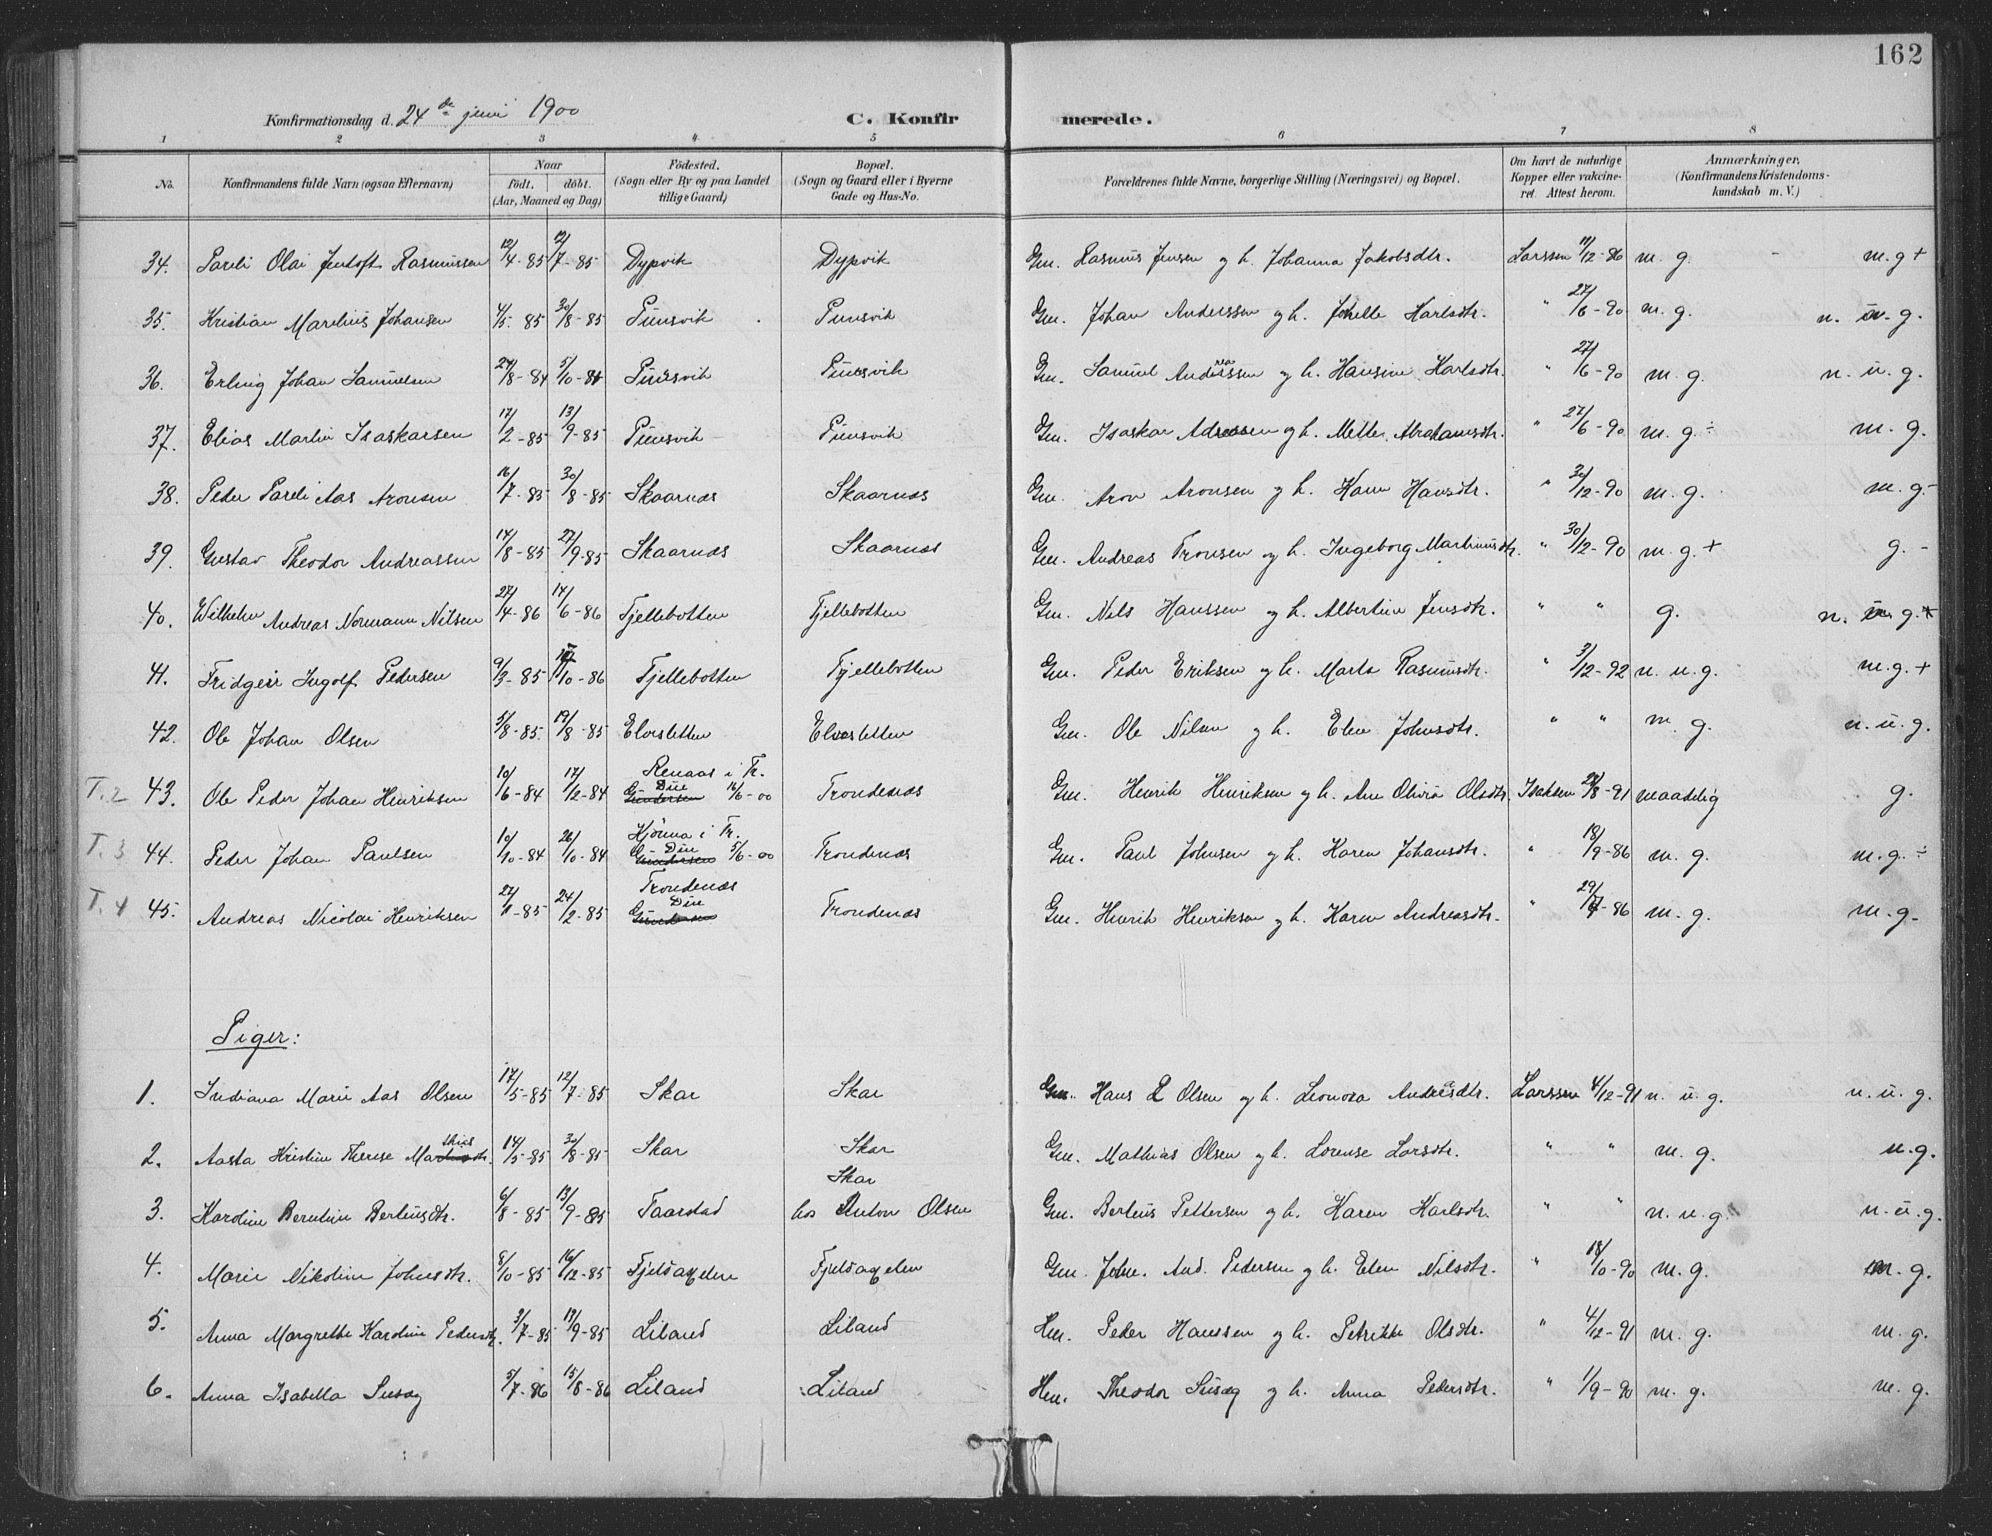 162
Konfirmationsdag d. 24de juni 1900
C. Konfirmerede.
1 2 3 4 5 6 7 8
No. Konfirmandens fulde Navn (ogsaa Efternavn) Naar født. døbt. (Aar, Maaned og Dag) Fødested. (Sogn eller By og paa Landet tillige Gaard) Bopæl. (Sogn og Gaard eller i Byerne Gade og Hus-No. Forældrenes fulde Navne, borgerlige Stilling (Næringsvei) og Bopæl. Om havt de naturlige Kopper eller vakcineret. Attest herom. Anmærkninger. (Konfirmandens Kristendomskundskab m. V.)
34. Pareli Olai Jentoft Rasmussen 12/4-85 12/7-85 Dypvik Dypvik Gm. Rasmus Jensen og h. Johanna Jakobsdtr. Larssen 11/12-86 m. g. m.g +
35. Kristian Marelius Johansen 4/5-85 30/8-85 Punsvik Punsvik Gm. Johan Anderssen og h. Karlsdtr. " 27/6-90 m. g. n. u. g.
36. Erling Johan Samuelsen 27/8-84 5/10-84 Punsvik Punsvik Gm. Samuel Andreassen og h. Hansine Karlsdtr. " 27/6-90 m. g. n. u. g.
37. Elias Martin Isaskarsen 17/2-85 13/9-85 Punsvik Punsvik Gm. Isaskar Adreassen og h. Mette Abrahamsdtr. " 27/6-90 m. g. ÷ m. g.
38. Peder Pareli Aas Aronsen 16/7-85 30/8-85 Skaarnæs Skaarnæs Gm. Aron Aronsen og h. Karen Hansdtr. " 30/12-90 m. g. m. g.-
39. Gustav Theodor Andreassen 14/8-85 27/9-85 Skaarnæs Skaarnæs Gm. Andreas Tronsen og h. Ingeborg Martinusdtr. " 30/12-90 m. g. + g. -
40. Wilhelm Andreas Normann Nilsen 27/4-86 14/6-86 Fjellebotten Fjellebotten Gm. Nils Hanssen og h. Albertine Jensdtr. " " g. n. u. g. +
41. Fridgeir Ingolf Pedersen 9/3-85 /10-86 Fjellebotten Fjellebotten Gm. Peder Eriksen og h. Marta Rasmusdtr. " 3/12-92 n. u. g. m.g. +
42. Ole Johan Olsen 5/8-85 19/8-85 Elvesletten Elvesletten Gm. Ole Nilsen og h. Elen Johnsdtr. " " m. g. n. u. g.
T. 2 43. Ole Peder Johan Henriksen 10/6-84 17/12-84 Renaas i Tr. Din 14/6-00 Trondenæs Gm. Henrik Henriksen og h. Ane Olivia Olsdtr. Isaksen 24/8-91 maadelig g.
T. 3 44. Peder Johan Paulsen 10/10-84 26/10-84 Hjönna i Tr. G-Din 5/6-00 Trondenæs Gm. Paul Johnsen og h. Karen Johansdtr. " 18/9-86 m. g. m. g. ÷
T. 4 45. Andreas Nicolai Henriksen 27/1-85 24/2-85 Trondenæs Din Trondenæs Gm. Henrik Henriksen og h. Karen Andreasdtr. " 29/7-86 m. g. m. g.
Piger:
1. Indiana Marie Aas Olsen 17/5-85 12/7-85 Skar Skar Gm. Hans L Olsen og h. Leonora Andreasdtr. Larssen 4/12-91 n. u. g. n. u. g.
2. Aasta Kristine Therese Mathiasdtr. 14/5-85 30/8-85 Skar Skar Gm. Mathias Olsen og h. Lorense Larsdtr. " " m. g. u.g.
3. Karoline Berntine Berteusdtr. 6/8-85 13/9-85 Taarstad Skar hos Anton Olsen Gm. Berteus Pettersen og h. Karen Karlsdtr. " " n. u. g. n. u. g.
4. Marie Nikoline Johnsdtr. 8/10-85 16/12-85 Fjeldaxelen Fjeldaxelen Gm. John. And. Pedersen og h. Elen Nilsdtr. " 18/10-90 m. g. m. g.
5. Anna Margrethe Karoline Pedersdtr. 3/7-85 13/9-85 Liland Liland Hm. Peder Hanssen og h. Petrikke Olsdtr. " 4/12-91 m. g. m. g.
6. Anna Isabella Susæg 5/7-86 15/8-86 Liland Liland Hm. Theodor Susæg og h. Anna Pedersdtr. " 1/9-90 m. g. m. g.